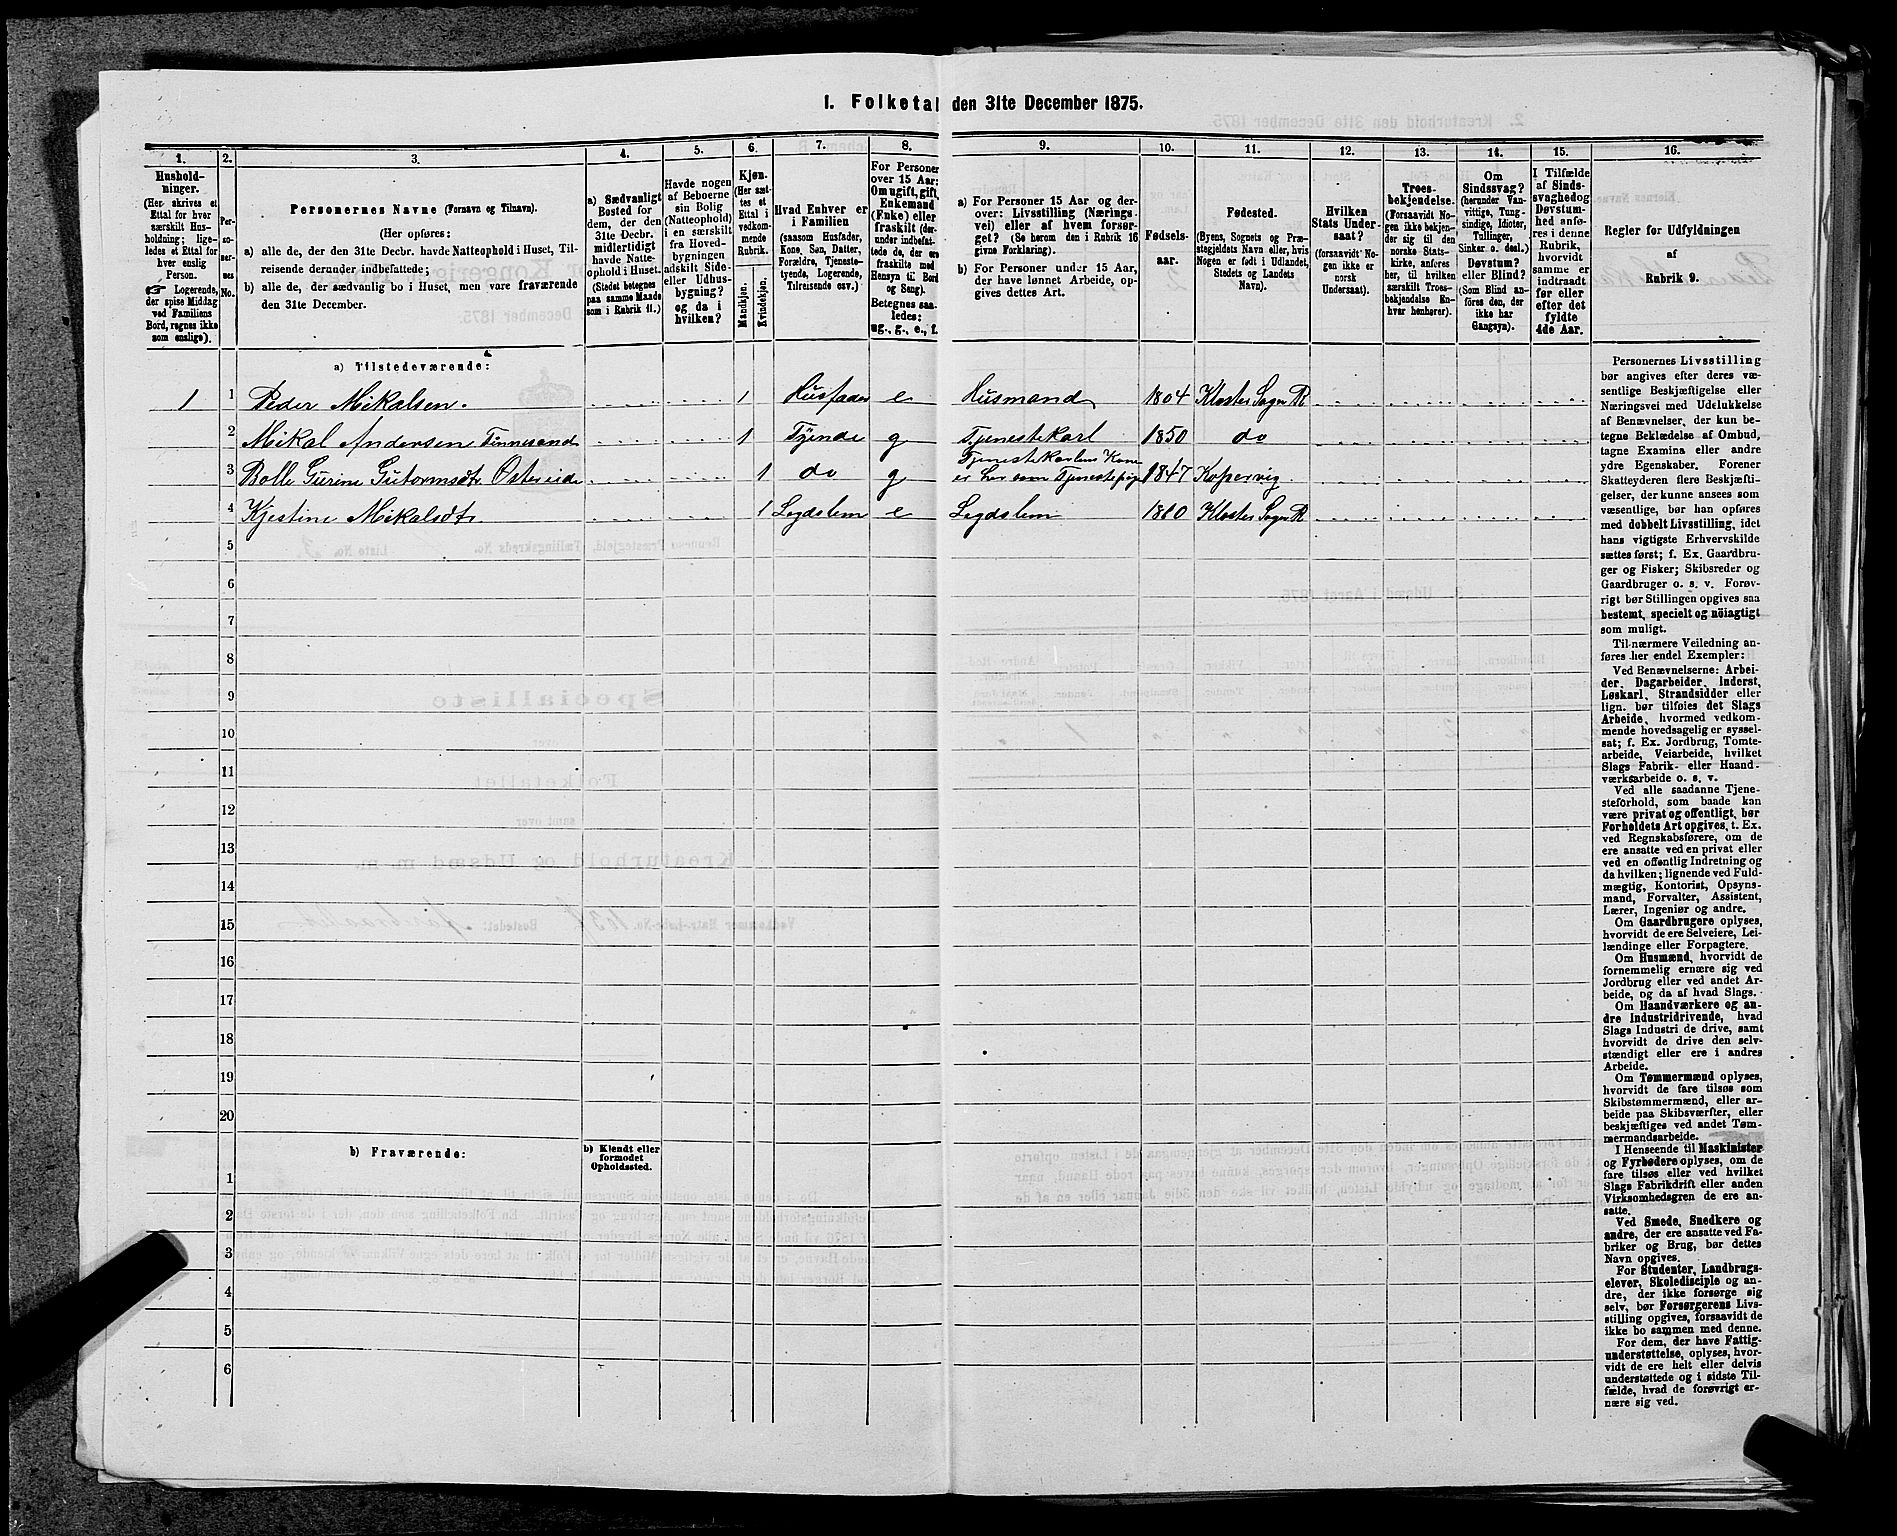 1. Folketal den 31te December 1875.
1.
Hushold-
ninger.
(Her skrives et
Ettal for hver
særskilt Hus-
holdning; lige-
ledes et Ettal for
hver enslig
Person.
☛ Logerende,
der spise Middag
ved Familiens
Bord, regnes ikke
som enslige).
2.
Per-
so-
ner-
nes
No.
3.
Personernes Navne (Fornavn og Tilnavn).
(Her opføres:
a) alle de, der den 31te Decbr. havde Natteophold i Huset, Til-
reisende derunder indbefattede;
b) alle de, der sædvanlig bo i Huset, men vare fraværende
den 31te December.
4.
a) Sædvanligt
Bosted for
dem, der den
31te Decbr.
midlertidigt
havde Natte-
ophold i Huset.
(Stedet betegnes
paa samme Maade
som i Rubrik 11.)
5.
Havde nogen
af Beboerne
sin Bolig
(Natteophold)
i en særskilt
fra Hoved-
bygningen
adskilt Side-
eller Udhus-
bygning?
og da i
hvilken?
6.
Kjøn.
(Her sæt-
tes et
Ettal i
vedkom-
mende
Rubrik.
Mandkjøn.
Kvindekjøn.
7.
Hvad Enhver er
i Familien
(saasom Husfader,
Kone, Søn, Datter,
Forældre, Tjeneste-
tyende, Logerende,
Tilreisende osv.)
8.
For Personer
over 15 Aar:
Om ugift, gift,
Enkemand
(Enke) eller
fraskilt (der-
under indbefat-
tede de, der ere
fraskilte med
Hensyn til Bord
og Seng).
Betegnes saa-
ledes:
ug., g., e., f.
9.
a) For Personer 15 Aar og der-
over: Livsstilling (Nærings-
vei) eller af hvem forsør-
get? (Se herom den i Rubrik 16
givne Forklaring).
b) For Personer under 15 Aar,
der have lønnet Arbeide, op-
gives dettes Art.
10.
Fødsels-
aar.
11.
Fødested.
(Byens, Sognets og Præ-
stegjeldets Navn eller, hvis
Nogen er født i Udlandet,
Stedets og Landets
Navn).
12.
Hvilken
Stats Under-
saat?
(forsaavidt No-
gen ikke er
norsk
Undersaat).
13.
Troes-
bekjendelse.
(Forsaavidt No-
gen ikke bekjen-
der sig til den
norske Stats-
kirke, anføres
her, til hvilken
særskilt Troes-
bekjendelse En-
hver henhører).
14.
Om
Sindssvag?
(herunder Van-
vittige, Tung-
sindige, Idioter,
Tullinger,
Sinker o. desl.)
Døvstum?
eller Blind?
(Som Blind an-
føres den, der
ikke har
Gangsyn).
15.
I Tilfælde
af Sinds-
svaghed og
Døvstum-
hed anfø-
res i denne
Rubrik,
hvorvidt
samme er
indtraadt
før eller
efter det
fyldte
4de Aar.
16.
Regler for Udfyldningen
af
Rubrik 9.
a) Tilstedeværende:
1 1 Peder Mikalsen. 1 Husfader e Husmand 1804 Kloster Sogn R
2 Mikal Andersen Finnesand 1 Tyende g Tjenestekarl 1850 do
3 Bolle Gurine Gutormsdtr Østereide 1 do g Tjenestekarlens Kone
er her som Tjenestepige 1847 Kopervig
4 Kjestine Mikalsdtr. 1 Legdslem e Legdslem 1800 Kloster Sogn R
5
6
7
8
9
10
11
12
13
14
15
16
17
18
19
20
b) Fraværende:
b) Kjendt eller
formodet
Opholdssted.
1
2
3
4
5
6
Personernes Livsstilling
bør angives efter deres væ-
sentlige Beskjæftigelse eller
Næringsvei med Udelukkelse
af Benævnelser, der kun be-
tegne Beklædelse af Ombud,
tagne Examina eller andre
ydre Egenskaber. Forener
Skatteyderen flere Beskjæfti-
gelser, der kunne ansees som
væsentlige, bør han opføres
med dobbelt Livsstilling, idet
hans vigtigste Erhvervskilde
sættes først; f. Ex. Gaardbru-
ger og Fisker; Skibsreder og
Gaardbruger o. s. v. Forøv-
rigt bør Stillingen opgives saa
bestemt, specielt og nöiagtigt
som muligt.
Til nærmere Veiledning an-
føres her endel Exempler:
Ved Benævnelserne: Arbei-
der, Dagarbeider, Inderst,
Løskarl, Strandsidder eller
lign. bør tilføies det Slags
Arbeide, hvormed vedkom-
mende hovedsagelig er syssel-
sat; f. Ex. Jordbrug, Tomte-
arbeide, Veiarbeide, hvilket
Slags Fabrik- eller Haand-
værksarbeide o. s. v.
Ved alle saadanne Tjene-
steforhold, som baade kan
være privat og offentligt, bør
Forholdets Art opgives, t. Ex.
ved Regnskabsførere, om de
ere ansatte ved en privat eller
ved en offentlig Indretning og
da hvilken; lignende ved Fuld-
mægtig, Kontorist, Opsyns-
mand, Forvalter, Assistent,
Lærer, Ingeniør og andre.
Om Gaardbrugere oplyses,
hvorvidt de ere Selveiere, Lei-
lændinge eller Forpagtere.
Om Husmænd, hvorvidt de
fornemmelig ernære sig ved
Jordbrug eller ved andet Ar-
beide, og da af hvad Slags.
Om Haandværkere og an-
dre Industridrivende, hvad
Slags Industri de drive, samt
hvorvidt de drive den selv-
stændigt eller ere i andres
Arbeide.
Om Tømmermænd oplyses,
hvorvidt de fare tilsøs som
Skibstømmermænd, eller ar-
beide paa Skibsværfter, eller
beskjæftiges ved andet Tøm-
mermandsarbeide.
I Henseende til Maskinister
og Fyrbødere oplyses, om de
fare tilsøs eller ved hvilket
Slags Fabrikdrift eller anden
Virksomhedsgren de ere an-
satte.
Ved Smede, Snedkere og
andre, der ere ansatte ved Fa-
briker og Brug, bør dettes
Navn opgives.
For Studenter, Landbrugs-
elever, Skoledisciple og an-
dre, der ikke forsørge sig
selv, bør Forsørgerens Livs-
stilling opgives, forsaavidt de
ikke bo sammen med denne.
For dem, der have Fattig-
understøttelse, oplyses, hvor-
vidt de ere helt eller delvis
understøttede og i sidste Til-
fælde, hvad de forøvrigt er-
nære sig ved.